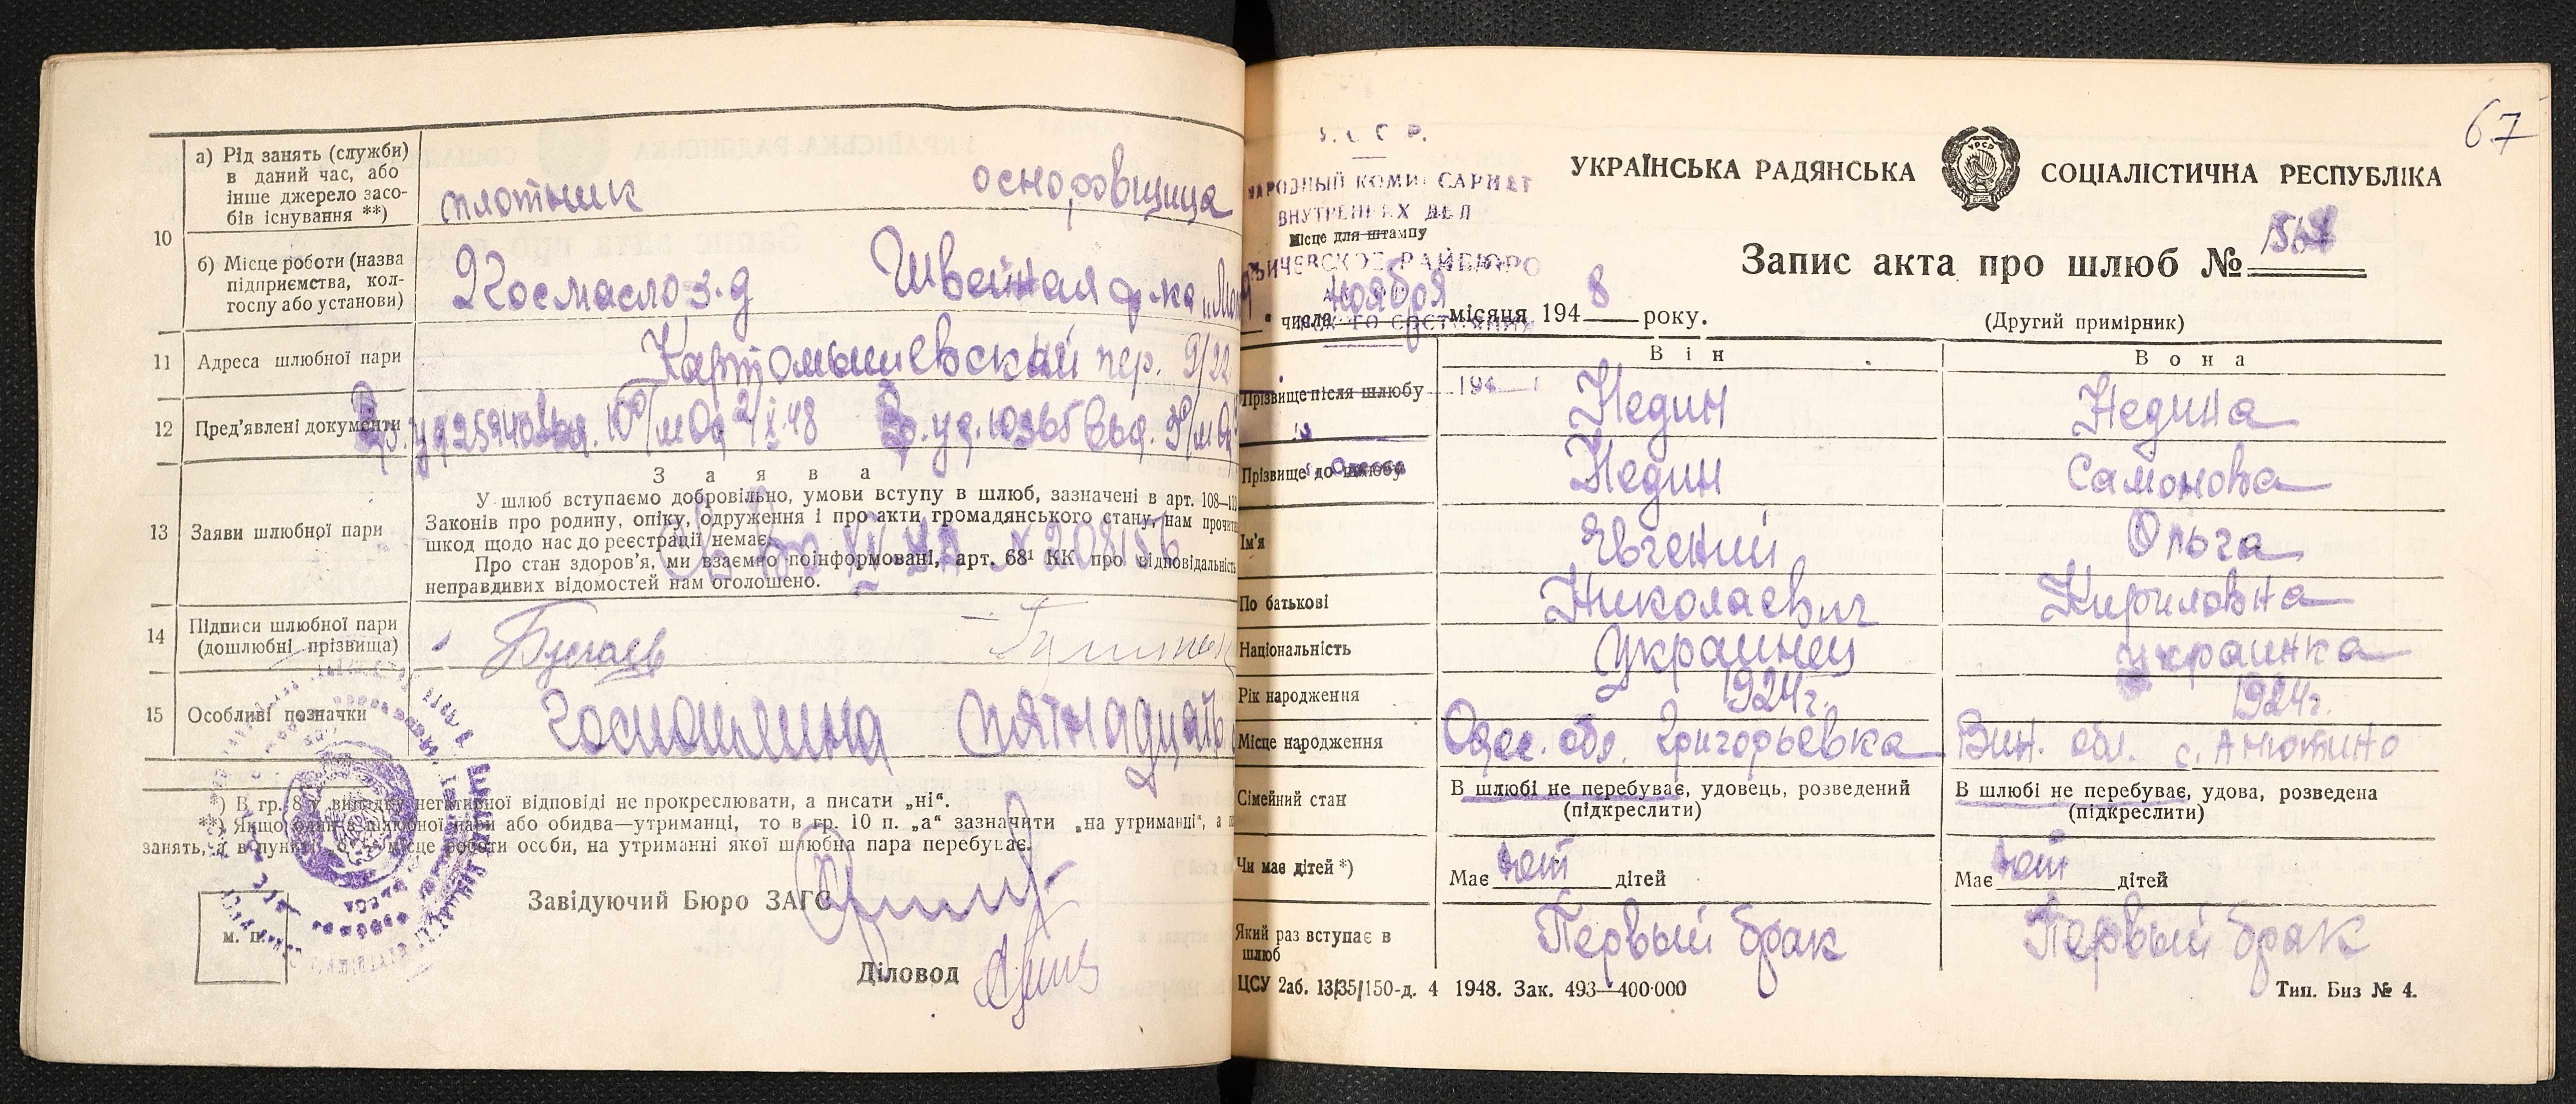 10
а) Рід занять (служби)
в даний час, або
інше джерело засо-
бів існування **)
плотник
основовщица
б) Місце роботи (назва
підприємства, кол-
госпу або установи)
Госмаслоз-д
Швейная ф-ка
11
Адреса шлюбної пари
Картомышевский пер. 9/22
12
Пред’явлені документи
13
Заяви шлюбної пари
Заява
У шлюб вступаємо добровільно, умови вступу в шлюб, зазначені в арт. 108—
Законів про родину, опіку, одруження і про акти громадянського стану, нам
шкод щодо нас до реєстрації немає.
Про стан здоров’я, ми взаємно поінформовані, арт. 68¹ КК про відповідальність
неправдивих відомостей нам оголошено.
14
Підписи шлюбної пари
(дошлюбні прізвища)
Бугаев
15
Особливі позначки
госпошлина пятнадцать
*) В гр. 8 у випадку негативної відповіді не прокреслювати, а писати „ні“.
**) Якщо один з шлюбної пари або обидва—утриманці, то в гр. 10 п. „а“ зазначити „на утриманні“, а
занять, а в пункті місце роботи особи, на утриманні якої шлюбна пара перебуває.
Завідуючий Бюро ЗАГС
м. п.
Діловод
67
УКРАЇНСЬКА РАДЯНСЬКА СОЦІАЛІСТИЧНА РЕСПУБЛІКА
УРСР
НАРОДНЫЙ КОМИССАРИАТ
ВНУТРЕННИХ ДЕЛ
Місце для штампу
РАЙБЮРО
Запис акта про шлюб №
числа ноября місяця 1948 року.
(Другий примірник)
Він
Вона
194
Прізвище після шлюбу
Недин
Недина
Прізвище до шлюбу
Недин
Самонова
Ім’я
Евгений
Ольга
По батькові
Николаевич
Кириловна
Національність
Украинец
украинка
Рік народження
1924г.
1924г.
Місце народження
Одес. обл. Григорьевка
Вин. обл. с. Анютино
Сімейний стан
В шлюбі не перебуває, удовець, розведений
(підкреслити)
В шлюбі не перебуває, удова, розведена
(підкреслити)
Чи має дітей *)
Має нет дітей
Має нет дітей
Який раз вступає в
шлюб
Первый брак
Первый брак
ЦСУ 2аб. 13/35/150-д. 4 1948. Зак. 493—400·000
Тип. Биз № 4.